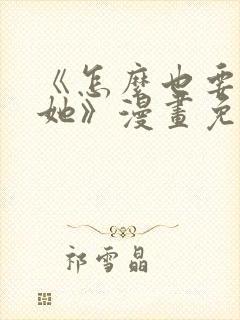 《怎麼也要
她》漫畫免
祁雪晶